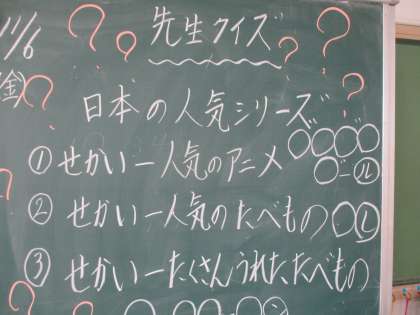 11/6
(金)
先生クイズ
日本の人気シリーズ
①せかい一人気のアニメ ○゛○○○
○゛ール
②せかい一人気のたべもの○し
③せかい一たくさんうれたたべもの